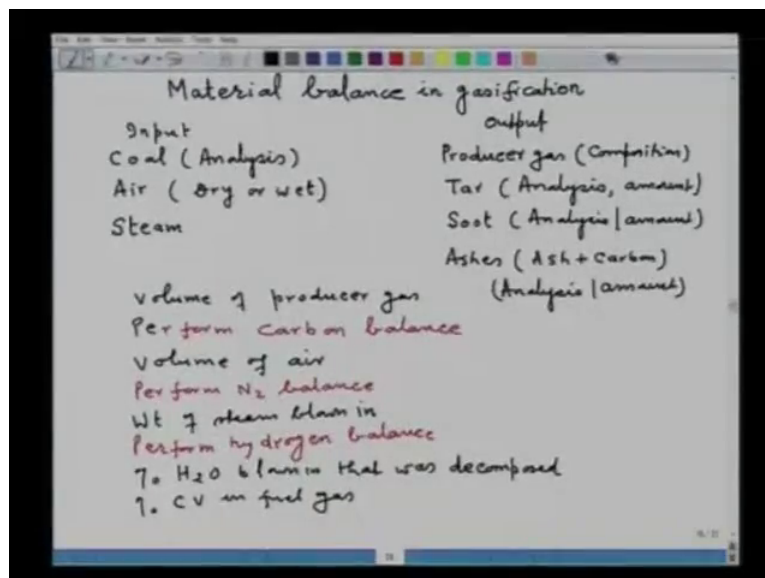 Material balance in gasification
Input
Output
Coal (Analysis)
Producer gas (Composition)
Air (Dry or wet)
Tar (Analysis, amount)
Steam
Soot (Analysis | amount)
Ashes (Ash + Carbon)
(Analysis | amount)
Volume of producer gas
Perform Carbon balance
Volume of air
Perform N2 balance
Wt of steam blown in
Perform hydrogen balance
%. H2O blown in that was decomposed
%. CV in fuel gas